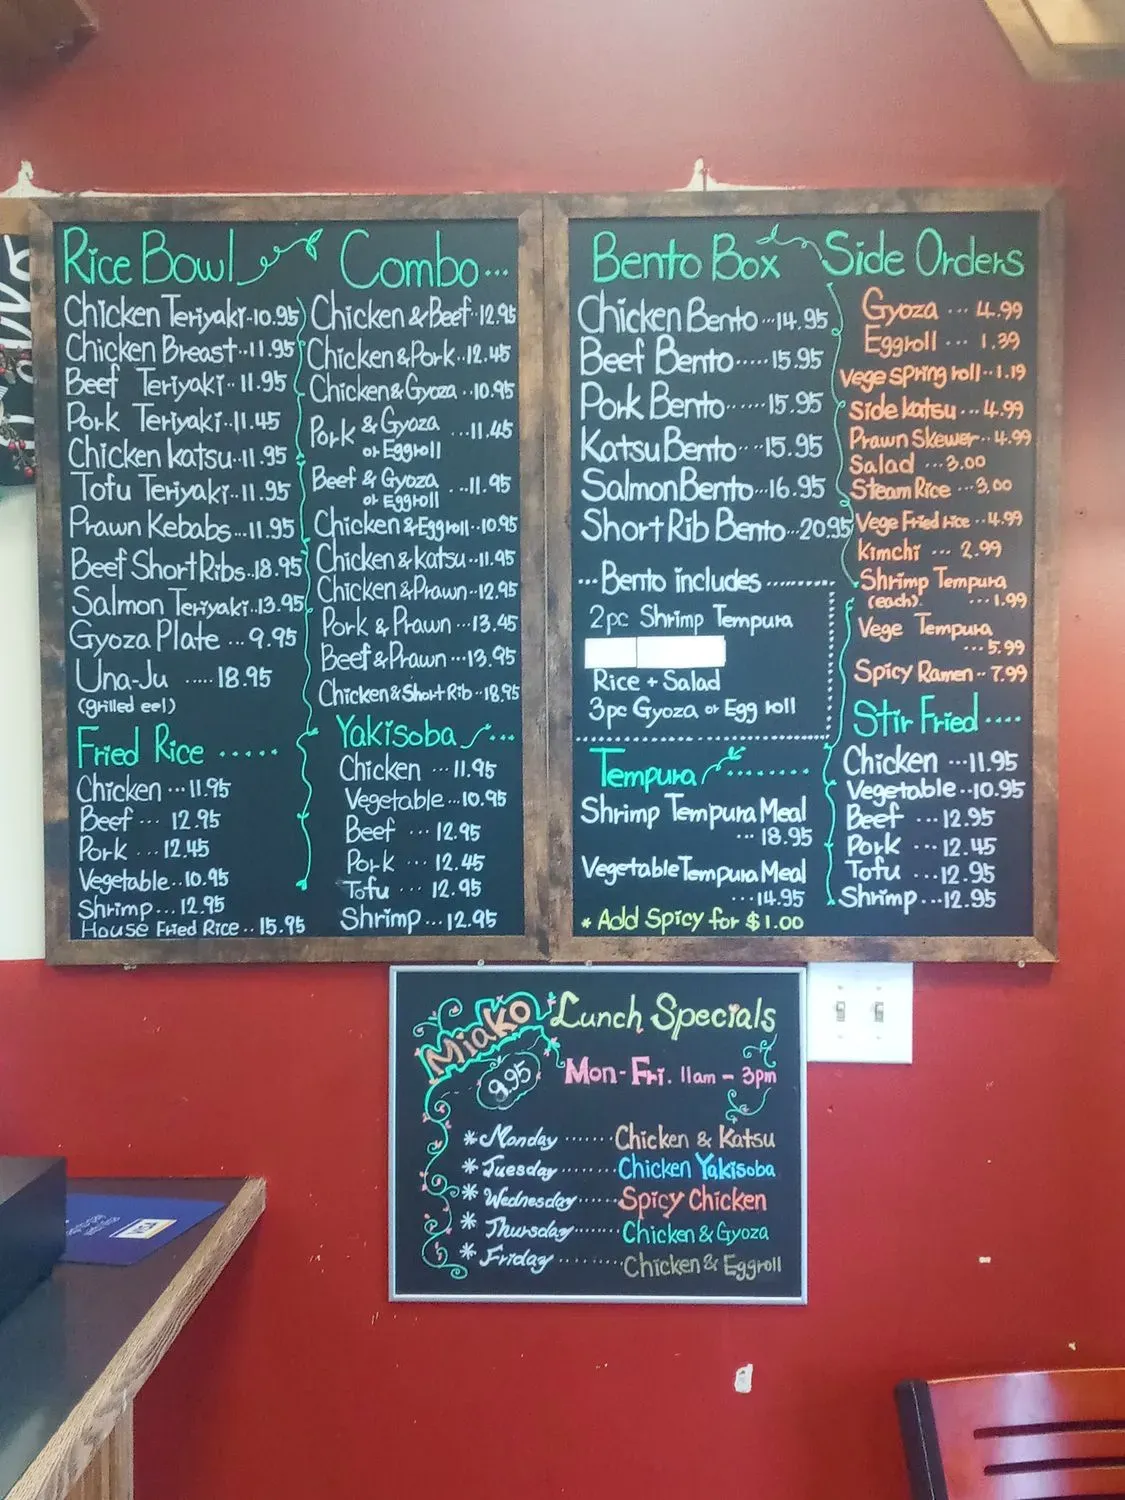 Rice Bowl
Chicken Teriyaki..10.95
Chicken Breast..11.95
Beef Teriyaki..11.95
Pork Teriyaki..11.45
Chicken Katsu..11.95
Tofu Teriyaki..11.95
Prawn Kebabs...11.95
Beef Short Ribs..18.95
Salmon Teriyaki..13.95
Gyoza Plate ...9.95
Una-Ju .....18.95
(grilled eel)
Fried Rice .....
Chicken ...11.95
Beef ... 12.95
Pork ...12.45
Vegetable..10.95
Shrimp...12.95
House Fried Rice..15.95
Combo...
Chicken & Beef..12.95
Chicken & Pork..12.45
Chicken & Gyoza..10.95
Pork & Gyoza ...11.45
or Eggroll
Beef & Gyoza ...11.95
or Eggroll
Chicken & Eggroll..10.95
Chicken & Katsu..11.95
Chicken & Prawn..12.95
Pork & Prawn...13.45
Beef & Prawn...13.95
Chicken & Short Rib..18.95
Yakisoba ...
Chicken ...11.95
Vegetable...10.95
Beef ... 12.95
Pork ... 12.45
Tofu ... 12.95
Shrimp...12.95
Bento Box
Chicken Bento...14.95
Beef Bento.....15.95
Pork Bento......15.95
Katsu Bento...15.95
Salmon Bento...16.95
Short Rib Bento...20.95
...Bento includes..........
2pc Shrimp Tempura
Rice + Salad
3pc Gyoza or Egg roll
Tempura ........
Shrimp Tempura Meal
...18.95
Vegetable Tempura Meal
...14.95
* Add Spicy for $1.00
Side Orders
Gyoza ... 4.99
Eggroll ... 1.39
Vege spring roll..1.19
Side katsu...4.99
Prawn Skewer..4.99
Salad ...3.00
Steam Rice ...3.00
Vege Fried rice..4.99
Kimchi ... 2.99
Shrimp Tempura
(each). ...1.99
Vege Tempura
...5.99
Spicy Ramen..7.99
Stir Fried ....
Chicken ...11.95
Vegetable..10.95
Beef ...12.95
Pork ... 12.45
Tofu ...12.95
Shrimp...12.95
Miako Lunch Specials
9.95
Mon-Fri. 11am - 3pm
* Monday .......Chicken & Katsu
* Tuesday ........Chicken Yakisoba
* Wednesday......Spicy Chicken
* Thursday........Chicken & Gyoza
* Friday ..........Chicken & Eggroll